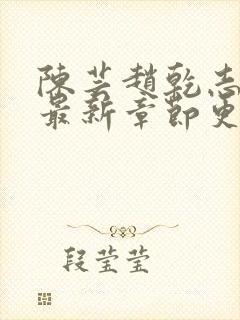 陳芸趙乾志
最新章節更
段莹莹